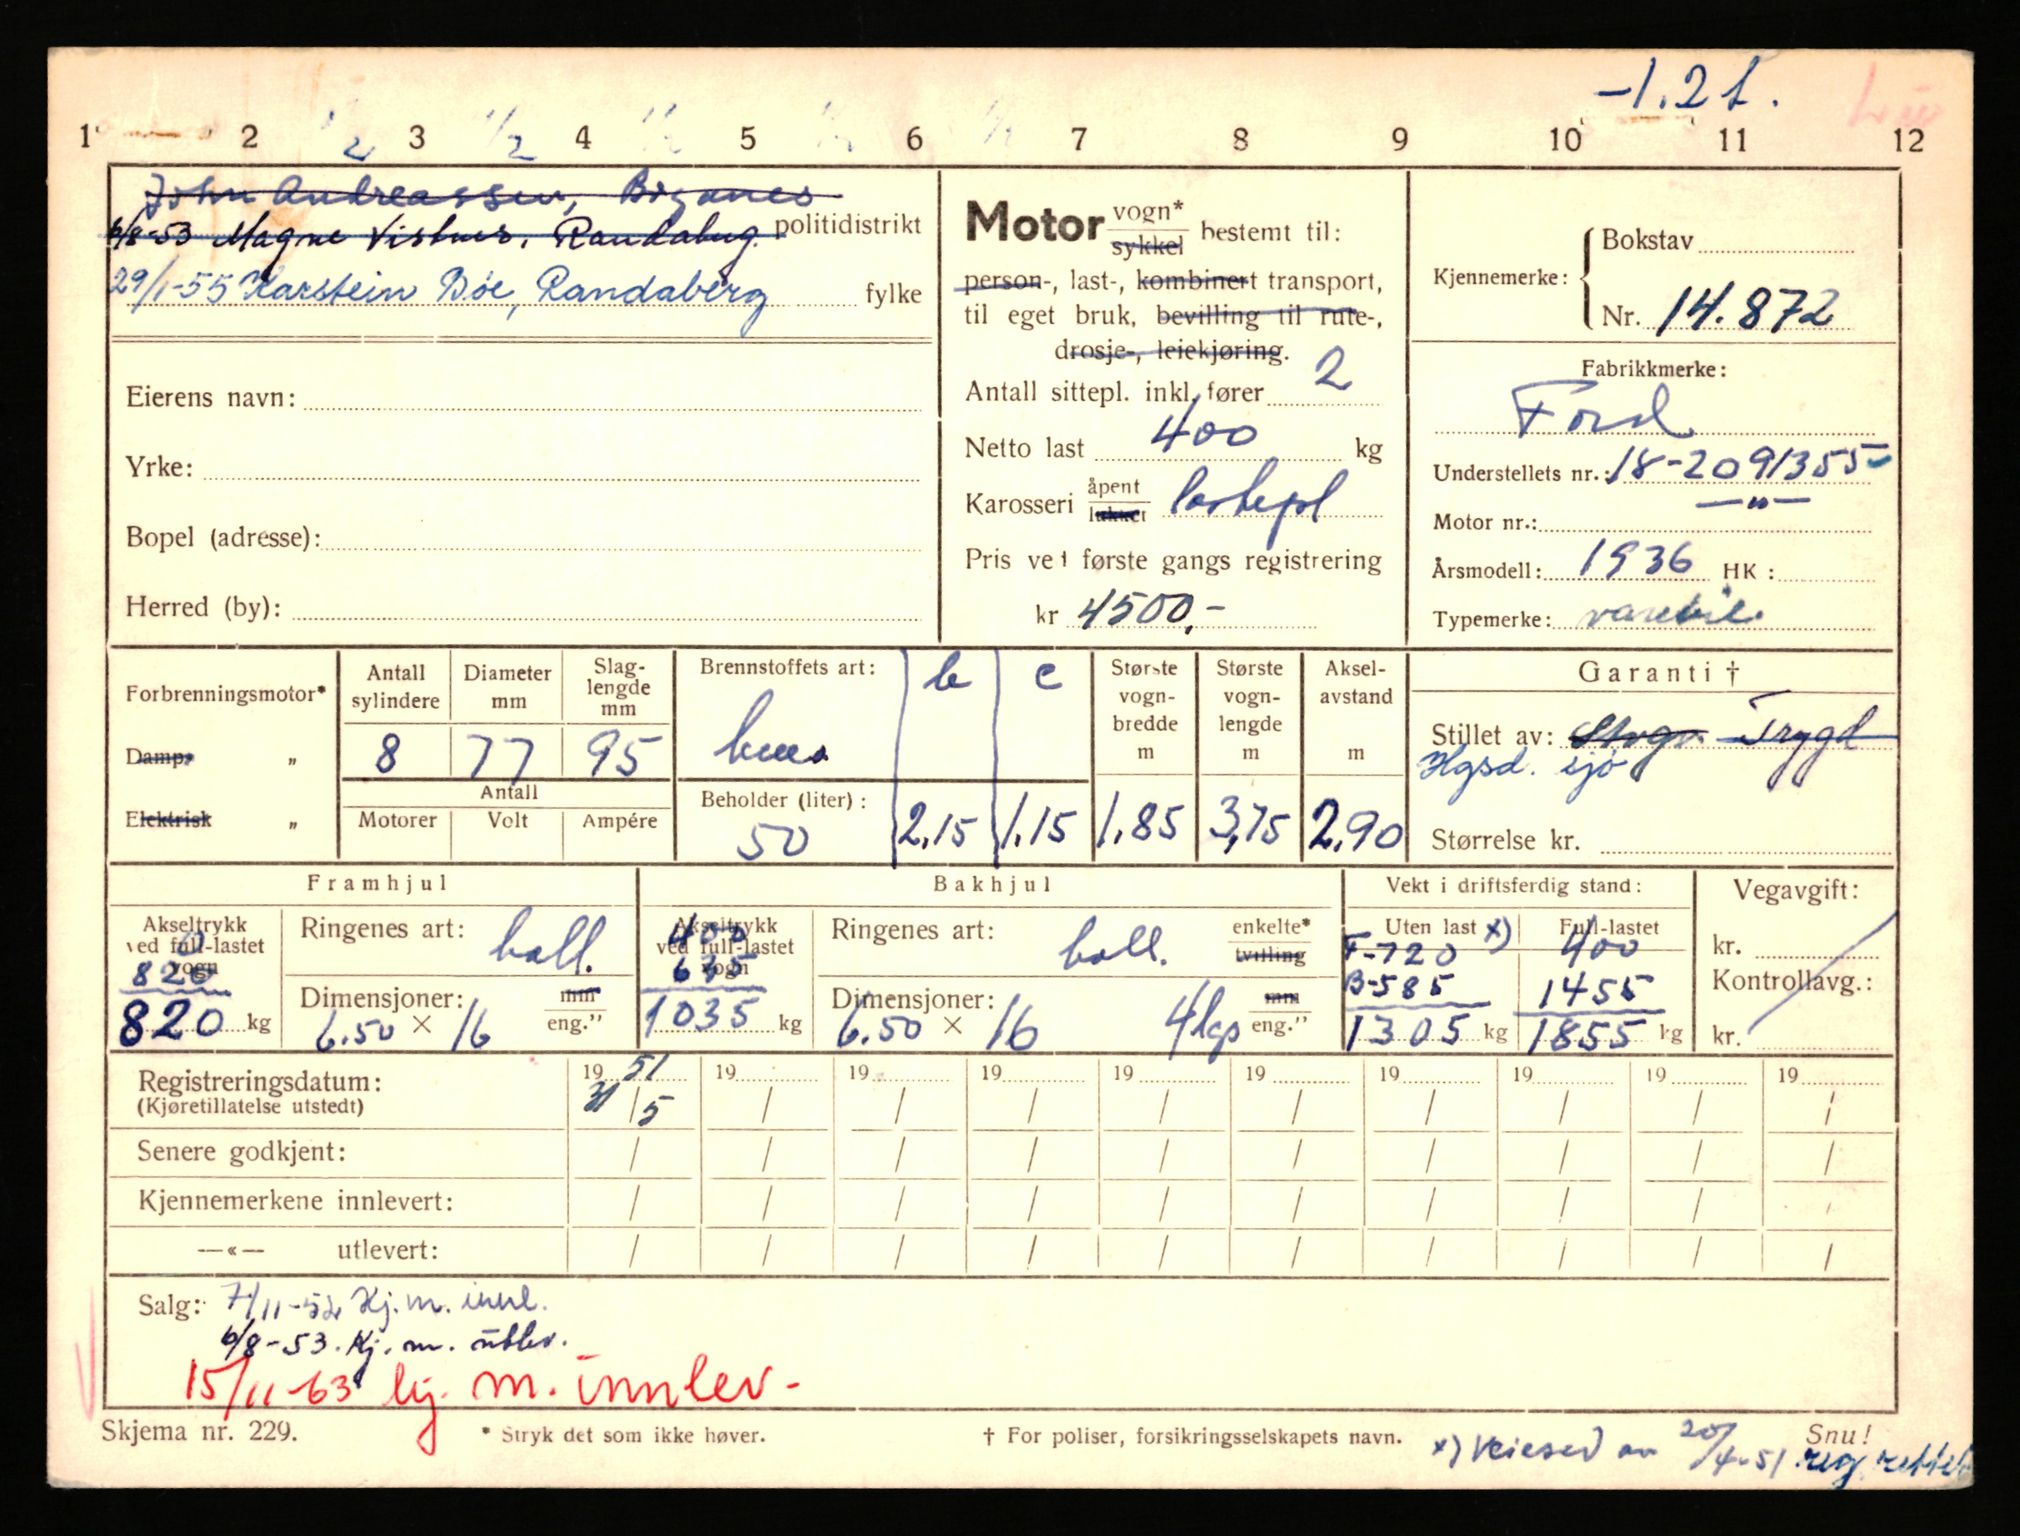 -1.2 t.
1 2 3 4 5 6 7 8 9 10 11 12
John Andreassen,
6/8-53 Magne Vistnes, Randabug. politidistrikt
29/1-55 Karstein Bøe, Randaberg fylke
Eierens navn:
Yrke:
Bopel (adresse):
Herred (by):
Motor vogn* sykkel bestemt til:
person-, last-, kombinert transport,
til eget bruk, bevilling til rute-,
drosje-, leiekjøring.
Antall sittepl. inkl. fører 2
Netto last 400 kg
Karosseri åpent lukket lastepl
Pris ved første gangs registrering
kr 4500,-
Kjennemerke: Bokstav
Nr. 14.872
Fabrikkmerke:
Ford
Understellets nr.: 18-2091355
Motor nr.: —"—
Årsmodell: 1936 HK:
Typemerke: varebil
Forbrenningsmotor*
Damp- „
Elektrisk „
Antall sylindere 8
Diameter mm 77
Slag-lengde mm 95
Antall
Motorer Volt Ampére
Brennstoffets art:
Beholder (liter): 50
b 2.15
c 1.15
Største vogn-bredde m 1.85
Største vogn-lengde m 3,75
Aksel-avstand m 2.90
Garanti †
Stillet av: Trygd
Hgsd. sjø
Størrelse kr.
Framhjul
Akseltrykk ved full-lastet vogn
0
820
820 kg
Ringenes art: ball.
Dimensjoner: mm
6.50 × 16 eng."
Bakhjul
Akseltrykk ved full-lastet vogn
400
635
1035 kg
Ringenes art: ball. enkelte* tvilling
Dimensjoner: mm
6.50 × 16 4 lap eng."
Vekt i driftsferdig stand:
Uten last x)
F-720
B-585
1305 kg
Full-lastet
400
1455
1855 kg
Vegavgift:
kr.
Kontrollavg.:
kr.
Registreringsdatum: 1951 19 19 19 19 19 19 19 19 19
(Kjøretillatelse utstedt) 31/5
Senere godkjent:
Kjennemerkene innlevert:
—«— utlevert:
Salg: 7/11-52 Kj. m. innl.
6/8-53. Kj. m. utlev.
15/11-63 kj. m. innlev-
Skjema nr. 229. * Stryk det som ikke høver. † For poliser, forsikringsselskapets navn. Snu!
x) Veiesed av 20/4-51 reg. rettet